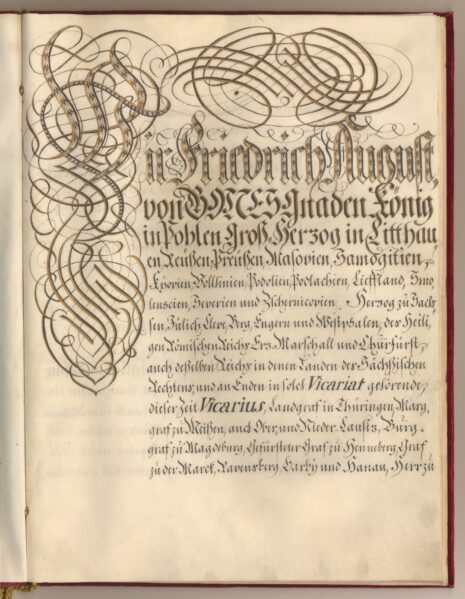 Wir Friedrich August,
von GOTTES Gnaden König
in Pohlen, Groß Herzog in Litthau
en, Reußen, Preußen, Masovien, Samogitien,
Kyovien, Vollhinien, Podolien, Podlachien, Liefland, Smo
lenscien, Severien und Zschernicovien, Herzog zu Sach
sen, Jülich, Cleve, Berg, Engern und Westphalen, des Heili
gen Römischen Reichs Erz-Marschall und Churfürst,
auch desselben Reichs in denen Landen des Sächßischen
Rechtens, und an Enden in solch Vicariat gehörende,
dieser Zeit Vicarius, Landgraf in Thüringen, Marg
graf zu Meißen, auch Ober- und Nieder-Lausitz, Burg
graf zu Magdeburg, Gefürsteter Graf zu Henneberg, Graf
zu der Marck, Ravensberg, Barby und Hanau, Herr zu